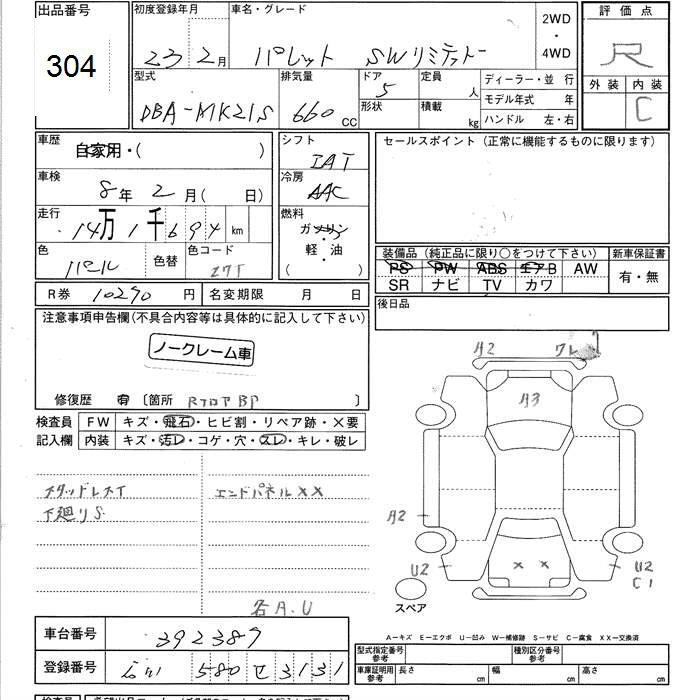 出品番号
304
初度登録年月
23 2月
車名・グレード
パレット SWリミテッド
2WD
・
4WD
評価点
R
外装 内装
C
型式
DBA-MK21S
排気量
660 CC
ドア
5
形状
定員
人
積載
kg
ディーラー・並行
モデル年式 年
ハンドル 左・右
車歴
自家用・( )
車検
8年 2月( 日)
走行
14万1千694 km
色
パール
色替
色コード
Z7T
シフト
IAT
冷房
AAC
燃料
ガソリン
・
軽・油
( )
セールスポイント (正常に機能するものに限ります)
装備品 (純正品に限り○をつけて下さい)
PS PW ABS エアB AW
SR ナビ TV カワ
新車保証書
有・無
R券 10290円
名変期限 月 日
後日品
注意事項申告欄(不具合内容等は具体的に記入して下さい)
ノークレーム車
修復歴 有 〔箇所 RフロアBP 〕
検査員
記入欄
FW キズ・飛石・ヒビ割・リペア跡・×要
内装 キズ・汚レ・コゲ・穴・スレ・キレ・破レ
スタッドレスT
下廻りS
エンドパネルXX
各A.U
A2
ワレ
A3
A2
U2
× ×
U2
C1
スペア
A―キズ E―エクボ U―凹み W―補修跡 S―サビ C―腐食 XX―交換済
車台番号
392387
登録番号
石川 580 セ 3131
型式指定番号
参考
種別区分番号
参考
車庫証明用
参考
長さ cm
幅 cm
高さ cm
検査員